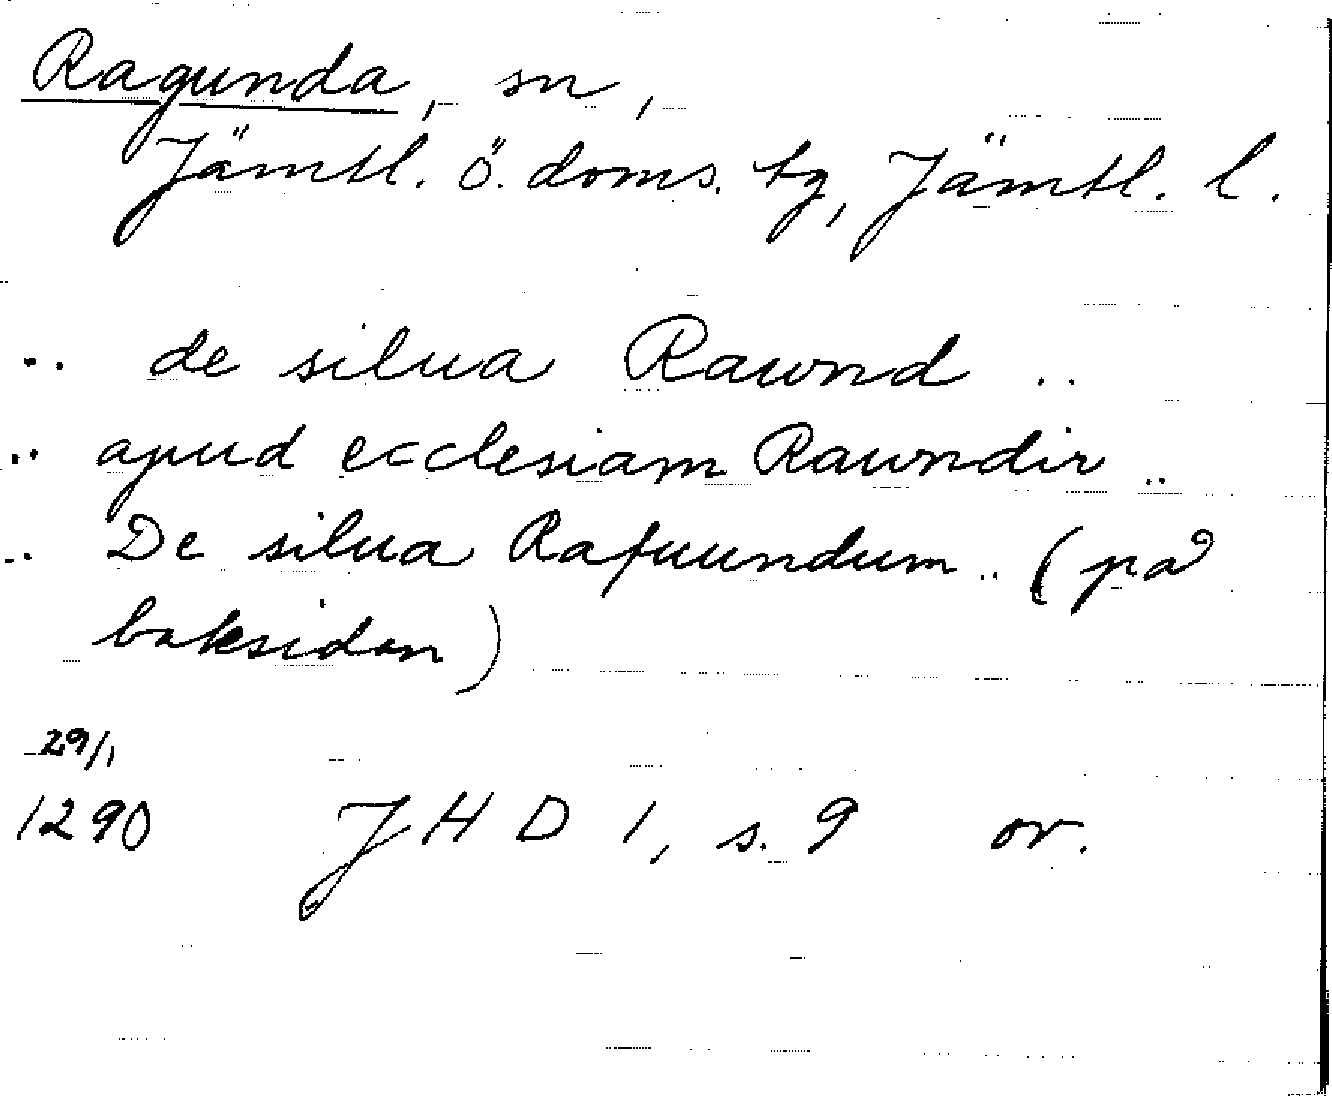 Ragunda, sn,
Jämtl. ö. doms. tg, Jämtl. l.
.. de silua Rawnd ..
.. apud ecclesiam Rawndir ..
.. De silua Rafuundum .. (på
baksidan)
29/1
1290 JHD 1, s. 9 or.